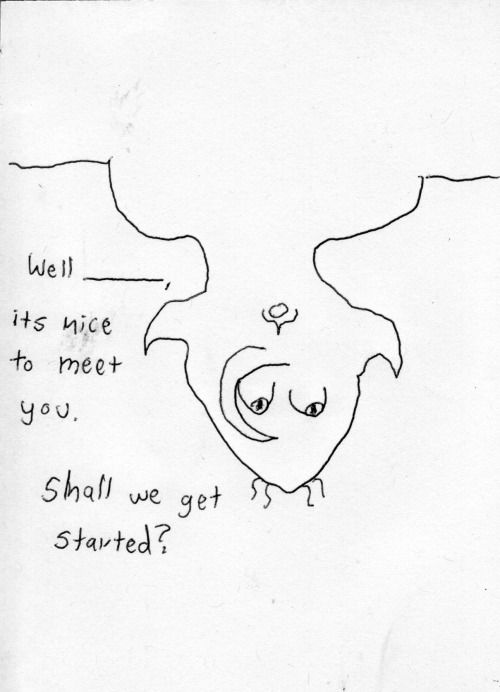 Well ________,
its nice
to meet
you.
Shall we get
started?